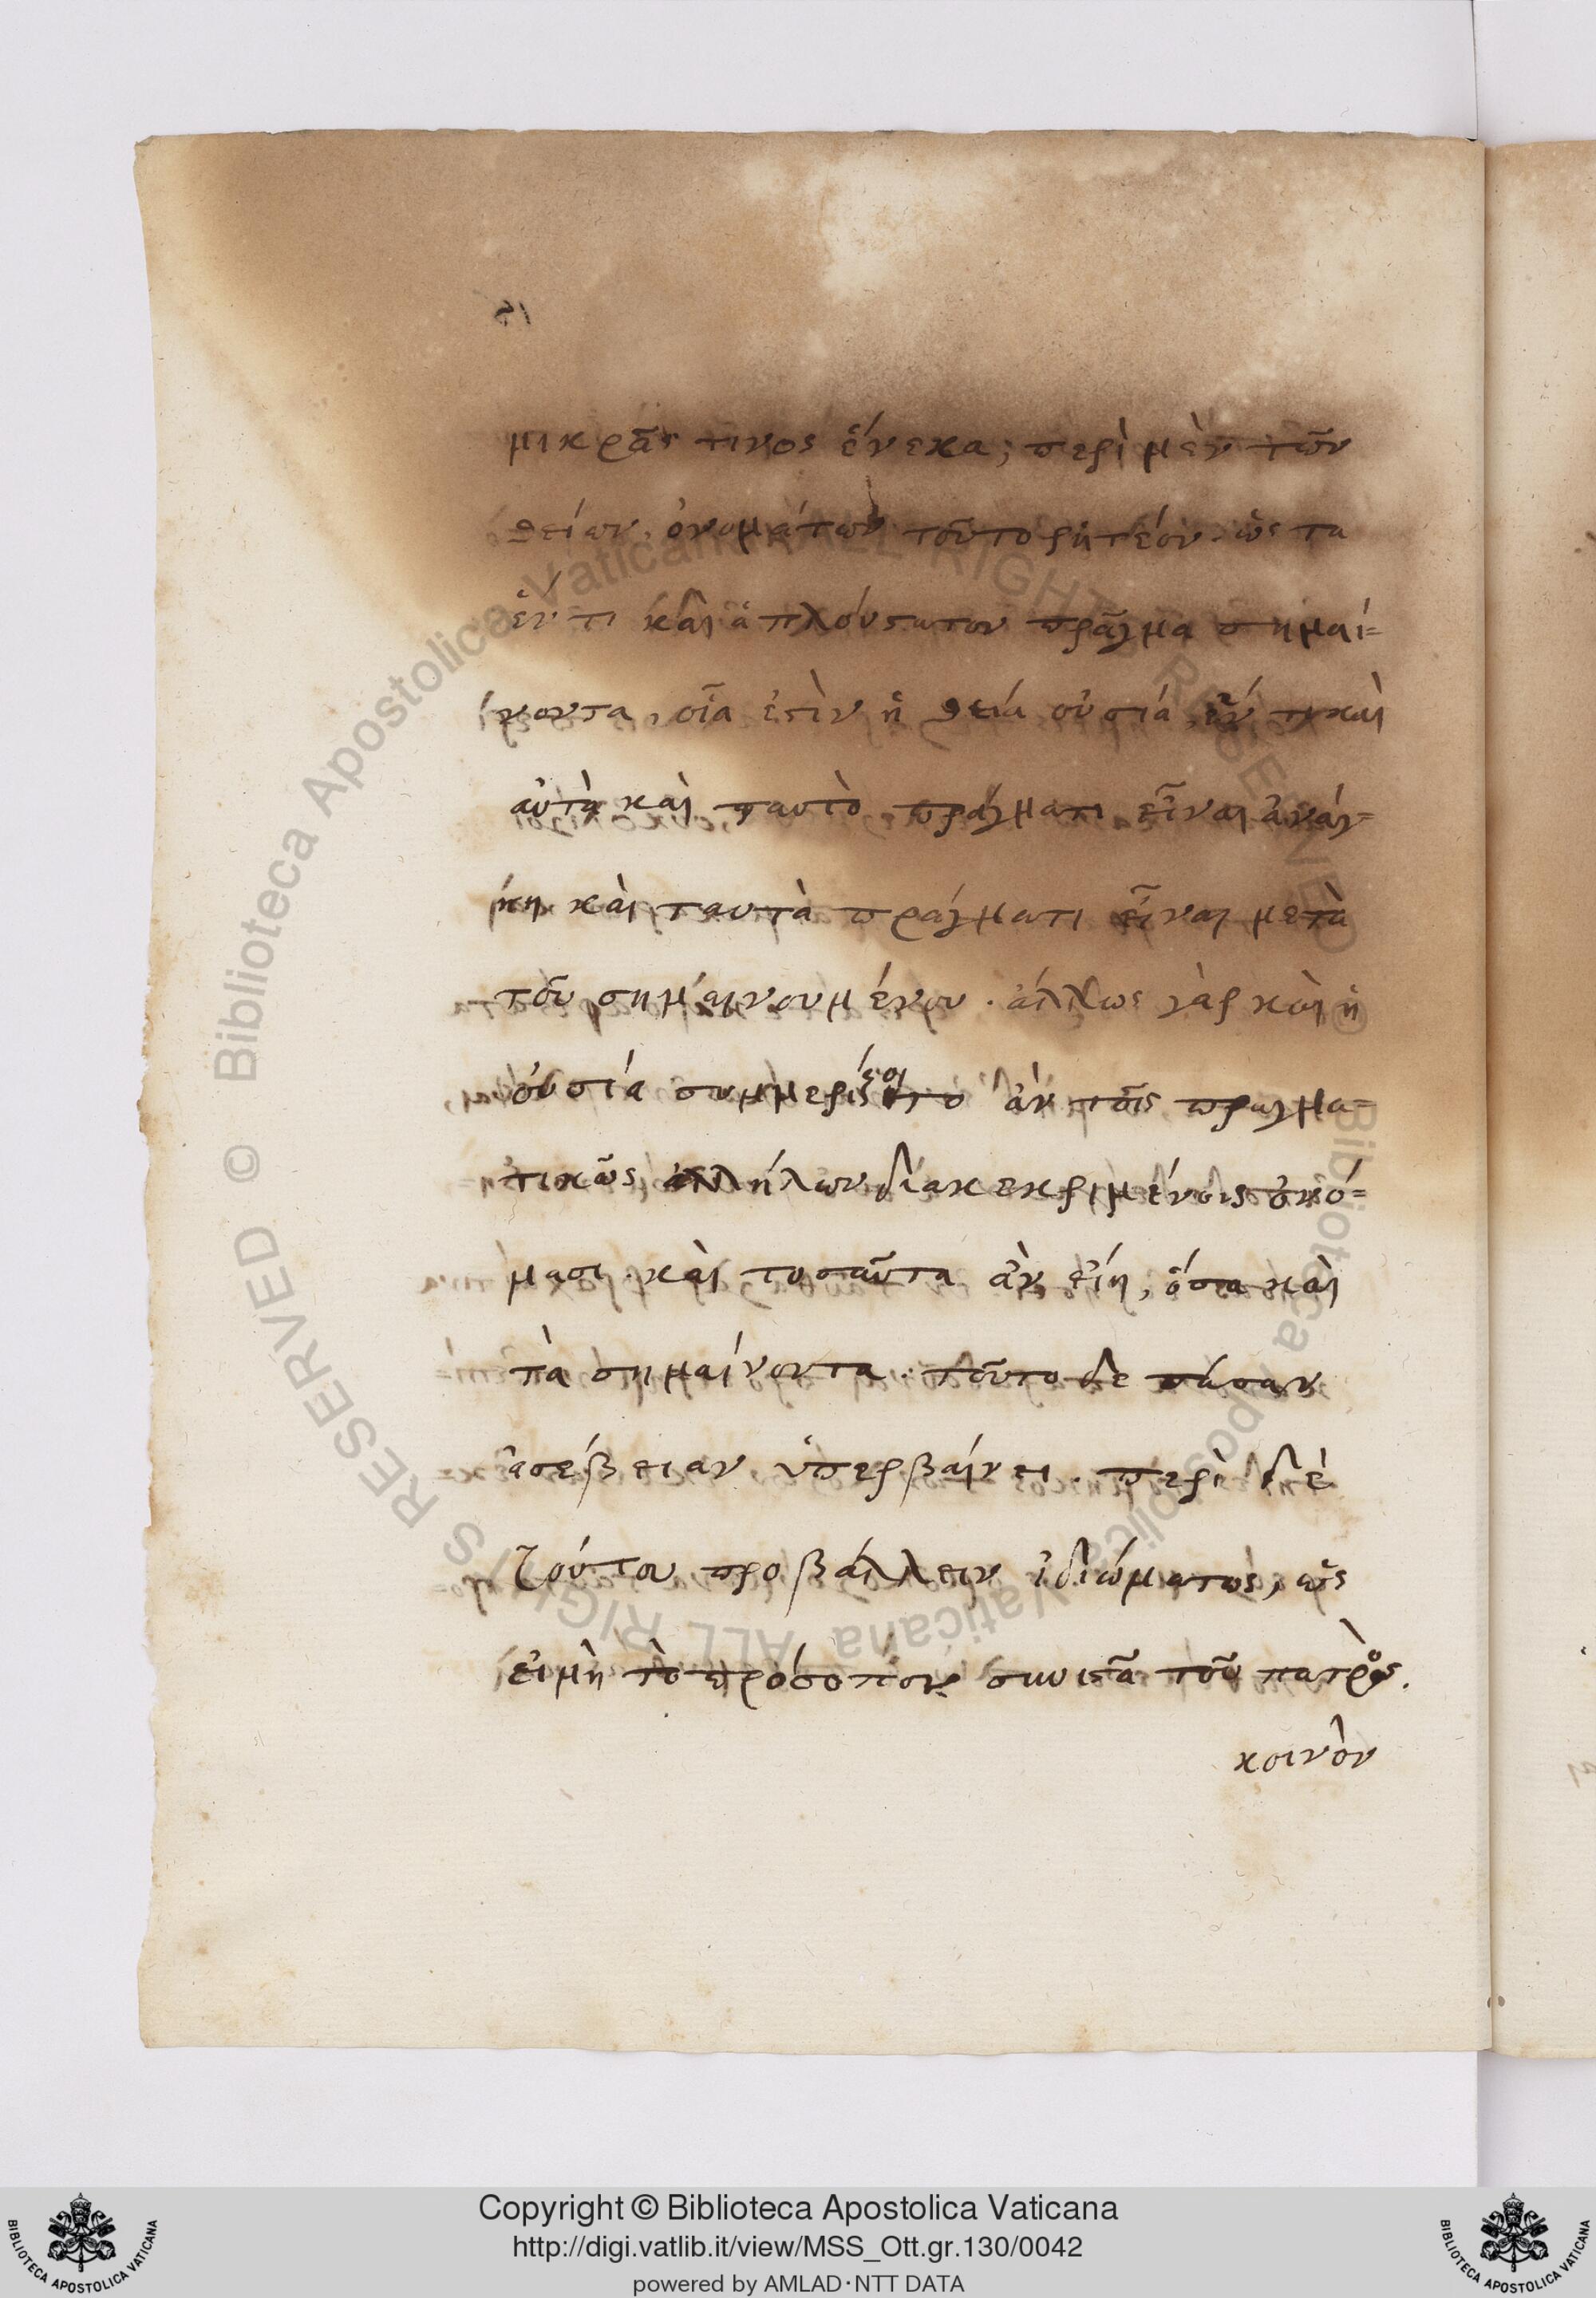 μικρᾶς τινος ἕνεκα; περὶ μὲν τῶν
θείων ὀνομάτων τοῦτο ῥητέον· ὡς τὰ
ἕν τι καὶ ἁπλούστατον πρᾶγμα σημαί=
νοντα, οἷα ἐστὶν ἡ θεία οὐσία, ἕν τι καὶ
αὐτὰ καὶ ταυτὸ πράγματι εἶναι ἀνάγ=
κη καὶ ταυτὰ πράγματι εἶναι μετὰ
τοῦ σημαινουμένου. ἄλλως γὰρ καὶ ἡ
οὐσία συμμερίζοιτο ἂν τοῖς πραγμα=
τικῶς ἀλλήλων διακεκριμένοις ὀνό=
μασι. καὶ τοσαῦτα ἂν εἴη, ὅσα καὶ
τὰ σημαίνοντα. τοῦτο δε πᾶσαν
ἀσέβειαν ὑπερβαίνει. περὶ δὲ
τούτου προβάλλειν ἰδιώματος, ὡς
εἰ μὴ τὸ πρόσοπον συνιστᾶ τοῦ πατρὸς.
κοινὸν
Copyright © Biblioteca Apostolica Vaticana
http://digi.vatlib.it/view/MSS_Ott.gr.130/0042
powered by AMLAD·NTT DATA
BIBLIOTECA APOSTOLICA VATICANA
BIBLIOTECA APOSTOLICA VATICANA
© Biblioteca Apostolica Vaticana ALL RIGHTS RESERVED
© Biblioteca Apostolica Vaticana ALL RIGHTS RESERVED